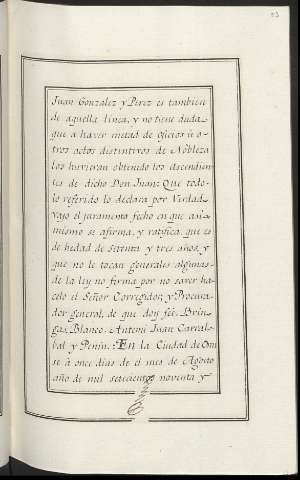 Juan Gonzalez y Perez es tambien
de aquella linea, y no tiene duda,
que a haver mitad de oficios ú o-
tros actos distintivos de Nobleza
los huvieran obtenido los ascendien-
tes de dicho Don Juan: Que todo
lo referido lo declara por Verdad
vajo el juramento fecho en que asi-
mismo se afirma, y ratifica, que es
de hedad de setenta y tres años, y
que no le tocan generales algunas
de la ley no firma por no saver ha-
celo el Señor Corregidor, y Procura-
dor general, de que doy feé. Brin-
gas, Blanco. Antemi Juan Carral-
bal y Penin. En la Ciudad de
se á once dias de el mes de Agosto
año de mil setecientos noventa y